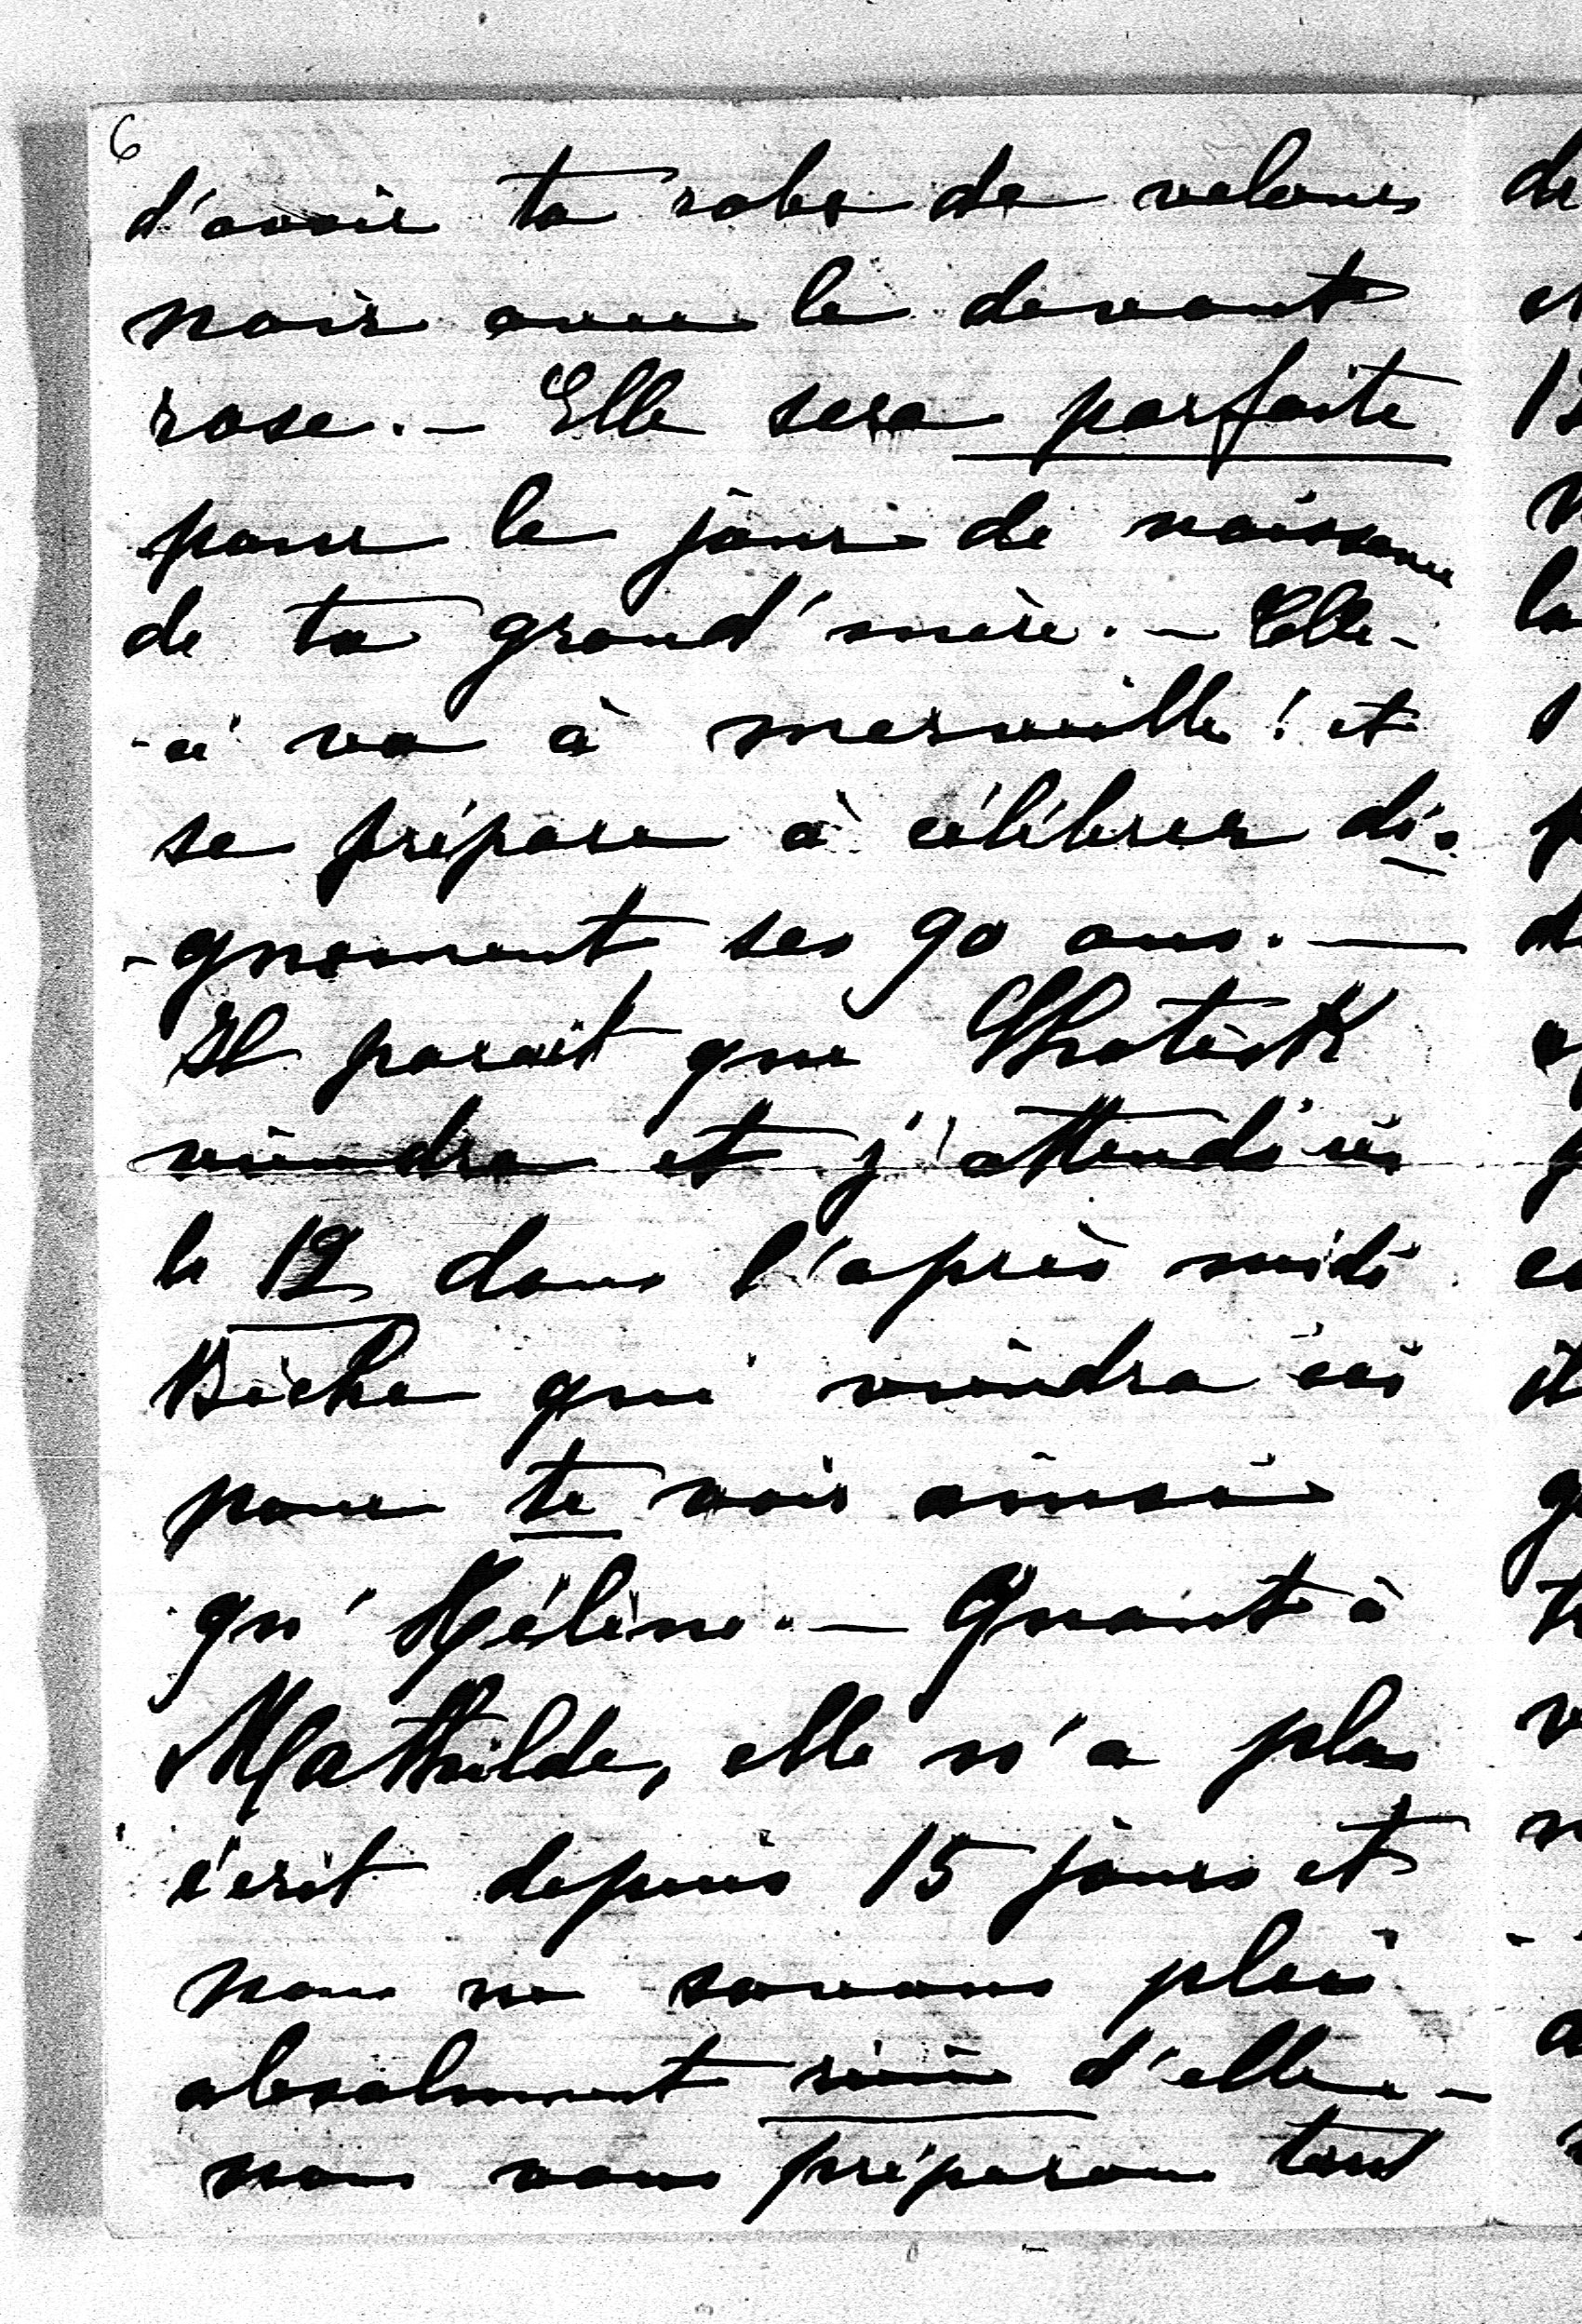 6
d'avoir ta robe de velours
noir avec le devant
rose. - Elle sera parfaite
pour le jour de naissance
de ta grand'mère. - Celle-
-ci va à merveille ! et
se prépare à célébrer di-
-gnement ses 90 ans. —
Il parait que
viendra et j'attends ici
le 12 dans l'après midi
Biche qui viendra ici
pour te voir ainsi
qu'Hélène. — Quant à
Mathilde, elle n'a plus
écrit depuis 15 jours et
nous ne savons plus
absolument rien d'elle -
nous vous préparons tout